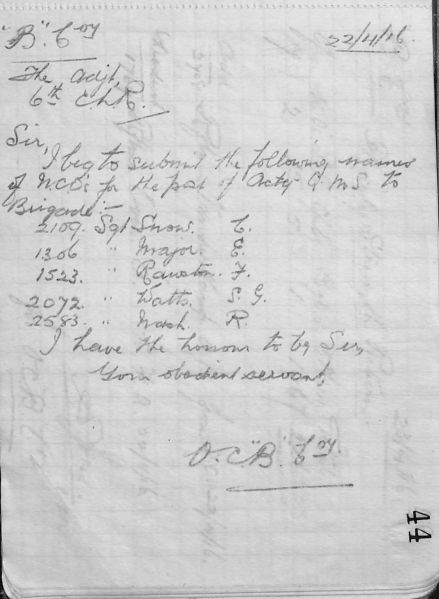 "B" Coy
22/4/16.
The Adjt,
6th C.L.R.
Sir,
I beg to submit the following names
of NCO's for the post of Actg Q.M.S to
Brigade:-
2109. Sgt Snow. C.
1306 " Major. E.
1523. " Rawston. F.
2072. " Watts. S. G.
2583. " Nash. R.
I have the honour to be Sir,
Your obedient servant,
O.C. "B" Coy.
44